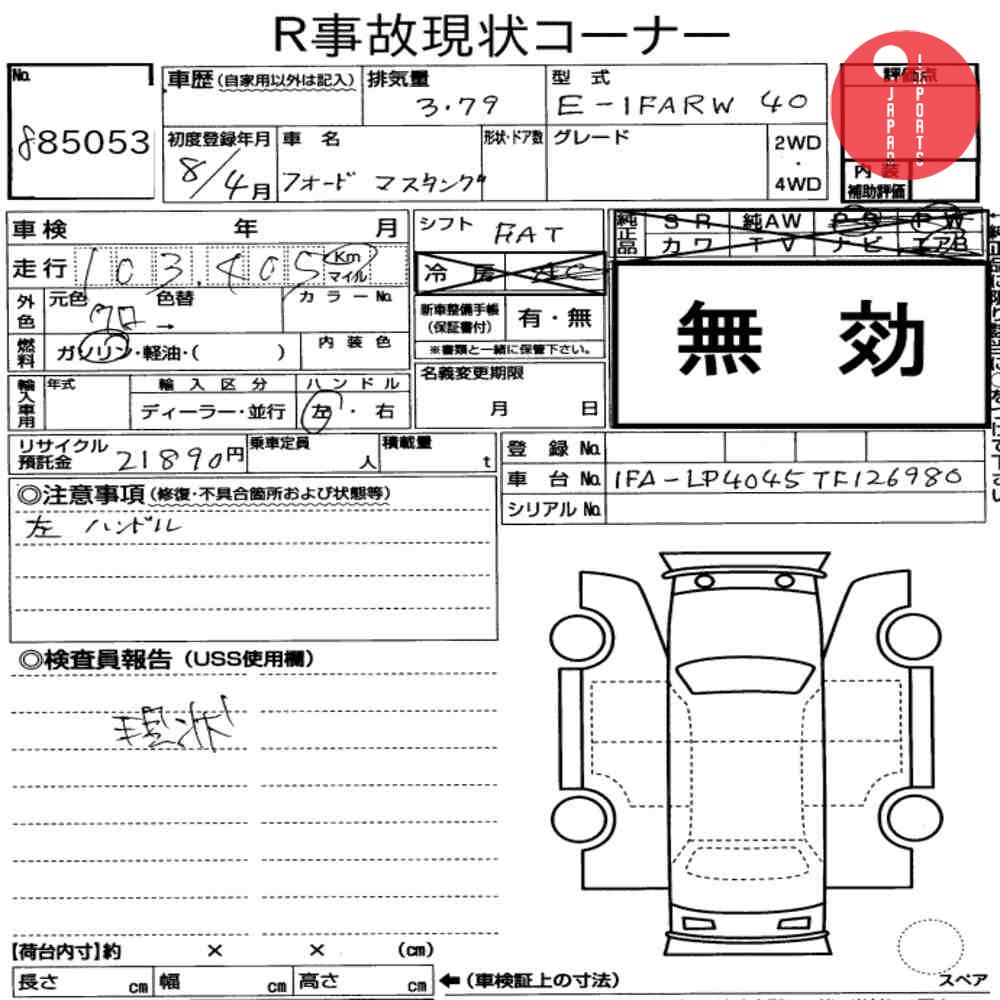 R事故現状コーナー
No. 885053
車歴(自家用以外は記入) 排気量 3.79 型式 E-1FARW40 評価点
JAPAN IMPORTS
初度登録年月 8/4月 車名 フォード マスタング 形状・ドア数 グレード 2WD・4WD
内装補助評価
車検 年 月 シフト FAT 純正品 SR 純AW PS PW
走行 103,405 Km マイル 冷房 AC カワ TV ナビ エアB
外色 元色 クロ 色替→ カラーNo. 新車整備手帳(保証書付) 有・無
無効
燃料 ガソリン・軽油・( ) 内装色 ※書類と一緒に保管下さい。
輸入車用 年式 輸入区分 ハンドル 名義変更期限
ディーラー・並行 左・右 月 日
リサイクル預託金 21890円 乗車定員 人 積載量 t 登録No.
車台No. 1FA-LP4045TF126980
シリアルNo.
◎注意事項(修復・不具合箇所および状態等)
左ハンドル
◎検査員報告(USS使用欄)
現状
【荷台内寸】約 × × (cm)
長さ cm 幅 cm 高さ cm ←(車検証上の寸法) スペア